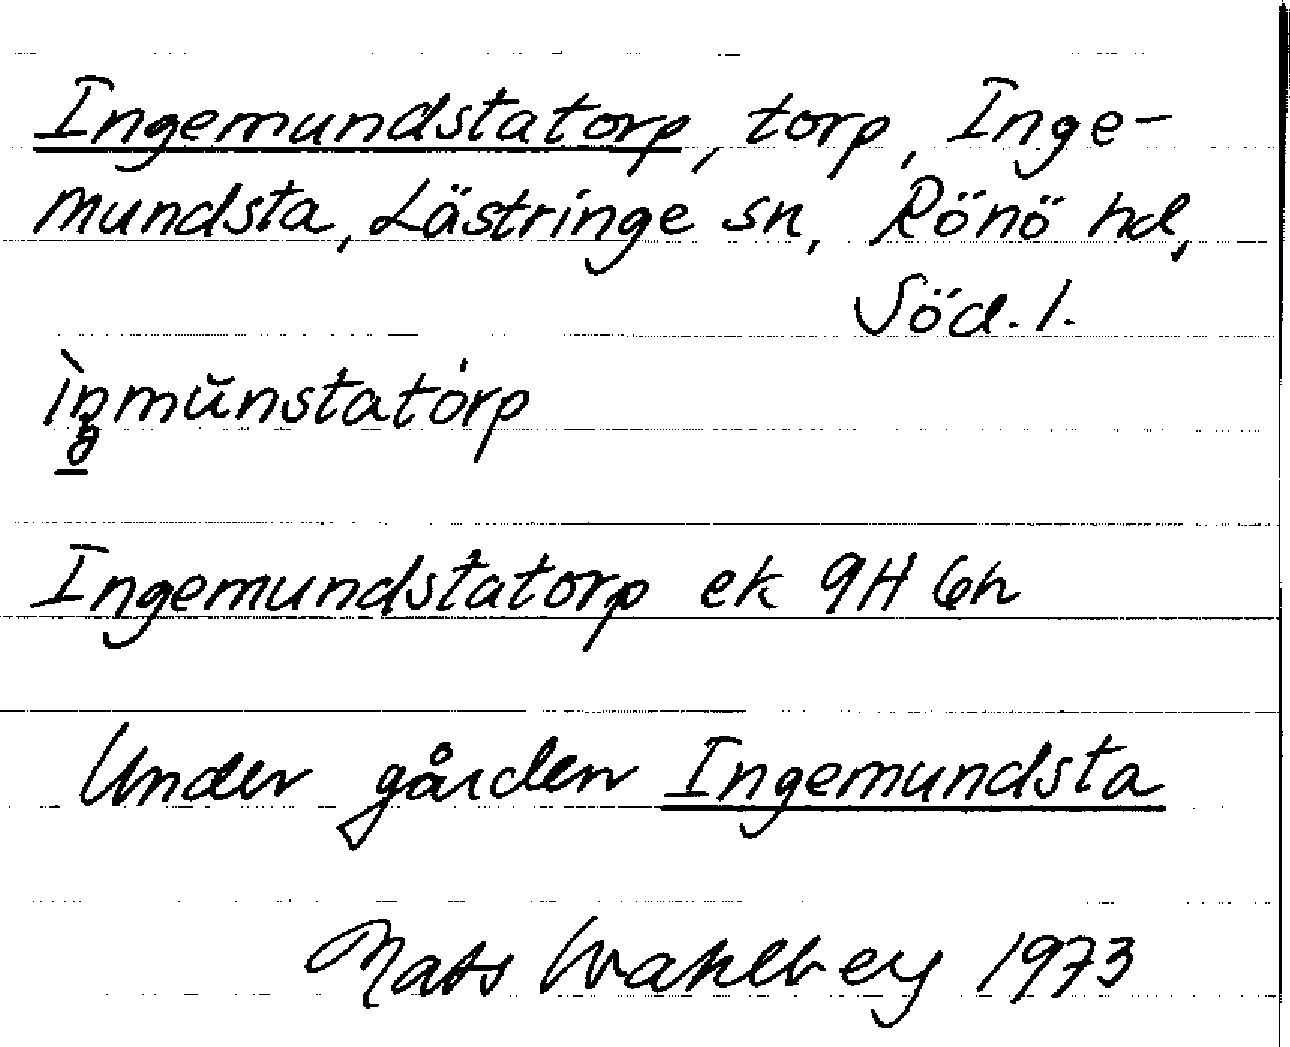 Ingemundstatorp, torp, Inge-
mundsta, Lästringe sn, Rönö hd,
Söd. l.
ìŋmŭnstatòrp
Ingemundstatorp ek 9H 6h
Under gården Ingemundsta
Mats Wahlberg 1973